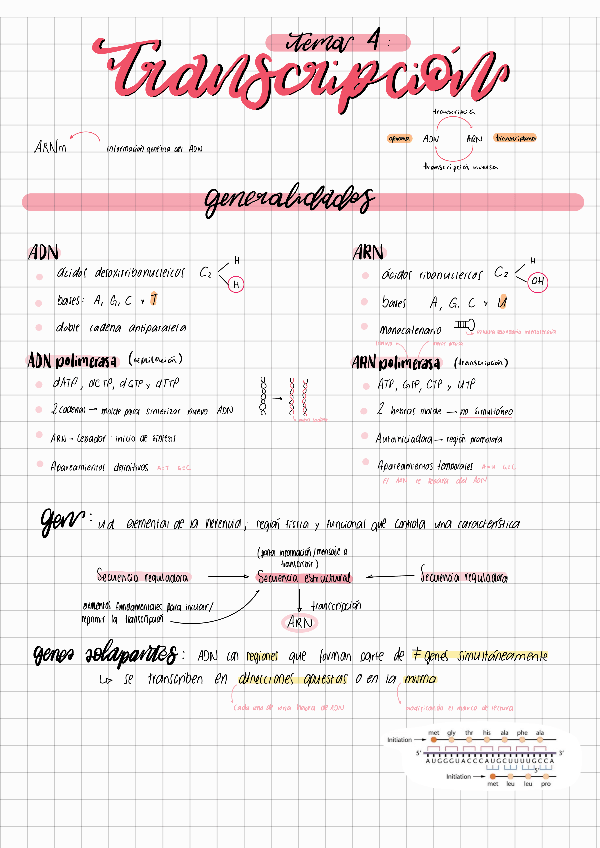 tema 4:
Transcripción
ARNm
información genética del ADN
transcripción
genoma ADN ARN transcriptoma
transcripción inversa
generalidades
ADN
ácidos desoxirribonucleicos C2 H H
bases: A, G, C y T
doble cadena antiparalela
ADN polimerasa (replicación)
dATP, dCTP, dGTP y dTTP
2 cadenas → molde para sintetizar nuevo ADN
ARN - Cebador: inicio de síntesis
Apareamientos definitivos A=T G≡C
ARN
ácidos ribonucleicos C2 H OH
bases A, G, C y U
monocatenario
ARN polimerasa (transcripción)
ATP, GTP, CTP y UTP
2 hebras molde → no simultáneo
Autoiniciadora → región promotora
Apareamientos temporales
el ARN se separa del ADN
gen: ud elemental de la herencia; región física y funcional que controla una característica
(porta información/mensaje a transcribir)
Secuencia reguladora → Secuencia estructural ← Secuencia reguladora
elementos fundamentales para iniciar/
reprimir la transcripción
transcripción
ARN
genes solapantes: ADN con regiones que forman parte de ≠ genes simultáneamente
↳ se transcriben en direcciones opuestas o en la misma
cada uno de una hebra de ADN
modificando el marco de lectura
met gly thr his ala phe ala
Initiation
5' 3'
AUGGGUACCCAUGCUUUUGCCA
5'
Initiation
met leu leu pro